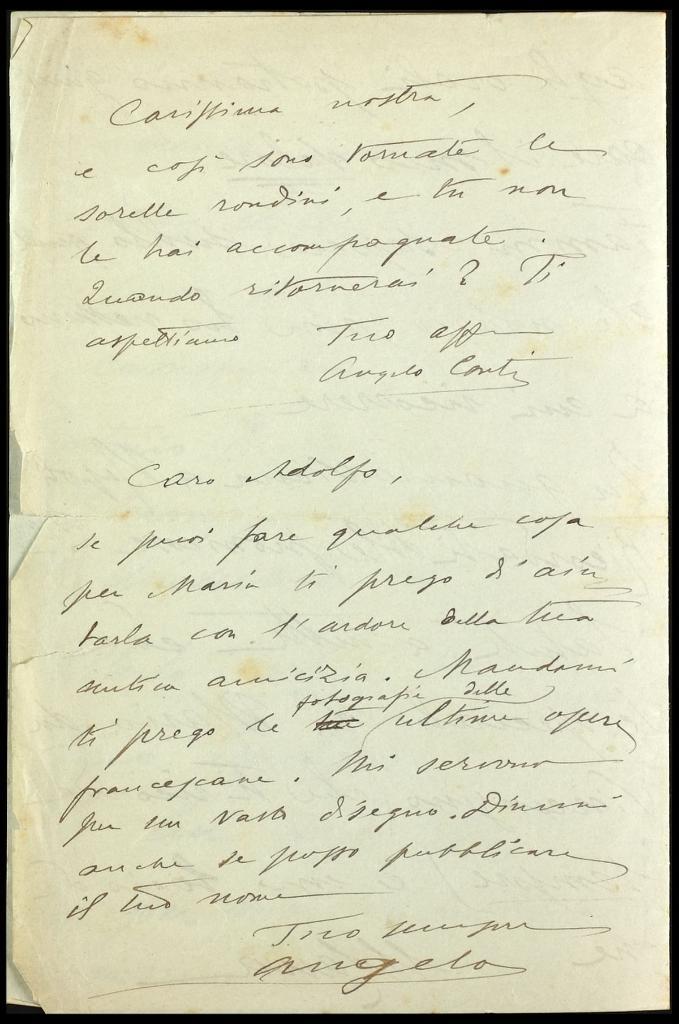 Carissima nostra,
e così sono tornate le
sorelle rondini, e tu non
le hai accompagnate.
Quando ritornerai? Ti
aspettiamo Tuo aff
Angelo Conti
Caro Adolfo,
se puoi fare qualche cosa
per Maria ti prego di aiu
tarla con l'ardore della tua
antica amicizia. Mandami
fotografie delle
ti prego le tue ultime opere
francescane. Mi servono
per un vasto disegno. Dimmi
anche se posso pubblicare
il tuo nome
Tuo sempre
Angelo